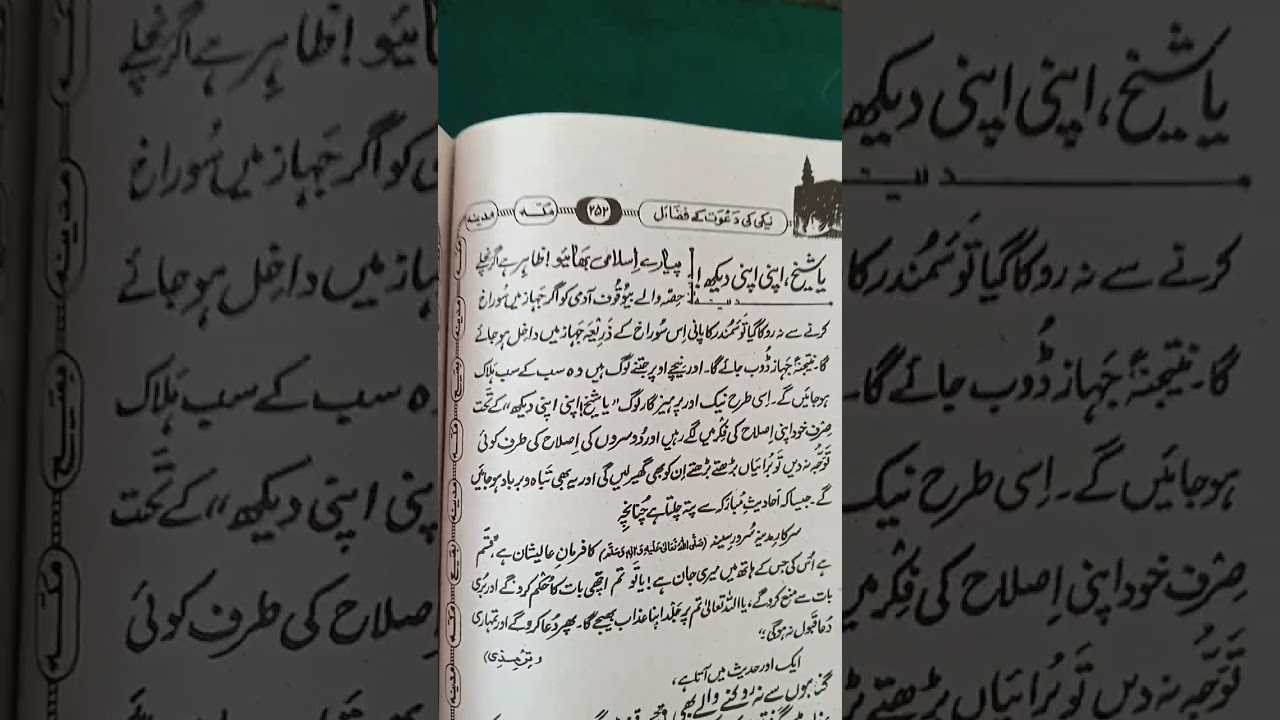 نیکی کی دَعْوَت کے فضَائل
۲۵۲
مکّہ
مدینہ
یا شیخ، اپنی اپنی دیکھ!
پیارے اِسلامی بھائیو! ظاہِر ہے اگر نچلے
حِصّہ والے بیوُقُوف آدمی کو اگر جَہاز میں سُوراخ
کرنے سے نہ روکا گیا تو سَمُندر کا پانی اِس سُوراخ کے ذَرِیعہ جَہاز میں داخِل ہو جائے
گا۔ نتیجتہً جَہاز ڈُوب جائے گا۔ اور نیچے اوپر جتنے لوگ ہیں وہ سب کے سب ہَلاک
ہو جائیں گے۔ اِسی طرح نیک اور پرہیز گار لوگ ”یا شیخ اپنی اپنی دیکھ“ کے تَحت
صِرْف خود اپنی اِصلاح کی فِکْر میں لگے رہیں اور دُوسروں کی اِصلاح کی طرف کوئی
تَوَجُّہ نہ دیں تو بُرائیاں بڑھتے بڑھتے اِن کو بھی گھیر لیں گی اور یہ بھی تَباہ و برباد ہو جائیں
گے۔ جیسا کہ اَحادیثِ مُبارَکہ سے پتہ چلتا ہے چُنانچِہ
سرکارِ مدینہ سُرورِ سینہ (صَلَّی اللّٰہُ تَعَالٰی عَلَیْہِ وَاٰلِہٖ وَسَلَّم) کا فرمانِ عالیشان ہے، ”قَسَم
ہے اُس کی جس کے ہاتھ میں میری جان ہے! یا تو تم اچھی بات کا حُکْم کرو گے اور بُری
بات سے منع کرو گے، یا اللہ تعالیٰ تم پر جَلْد اپنا عذاب بھیجے گا۔ پھر دُعا کرو گے اور تمہاری
دُعا قَبول نہ ہوگی“
(تِرْمِذِی)
ایک اور حدیث میں آتا ہے،
گناہوں سے نہ روکنے والے بھی